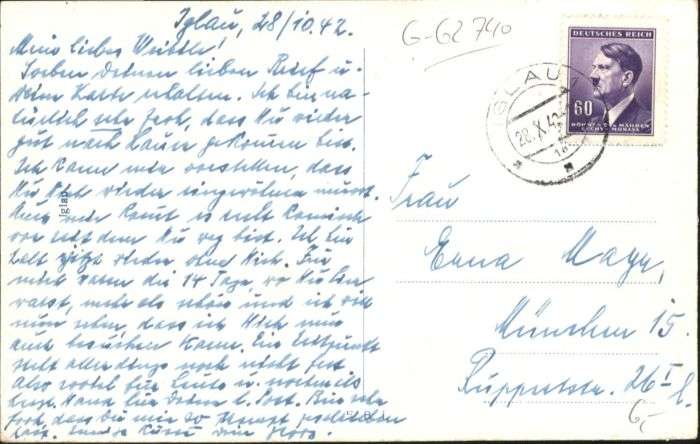 Iglau, 28/10.42.
Mein liebes Weible!
Soeben Deinen lieben Brief u.
Deine Karte erhalten. Ich bin na-
türlich sehr froh, dass Du wieder
gut nach Hause gekommen bist.
Ich kann mir vorstellen, dass
Du Dich wieder eingewöhnen musst.
Auch mir kommt es sehr komisch
vor seit dem Du weg bist. Ich bin
halt jetzt wieder ohne Dich. Für
mich waren die 14 Tage, wo Du hier
warst, mehr als schön und ich will
nun sehen, dass ich Dich nun
auch besuchen kann. Ein Zeitpunkt
steht allerdings noch nicht fest
also soviel für heute u. nochmals
Dank für Deine l. Post. Bin sehr
froh, dass Du mir so
hast. Kuss Dein
Iglau
G-62 740
DEUTSCHES REICH
60
BÖHMEN U. MÄHREN
ČECHY - MORAVA
IGLAU
28.X.42
Frau
Erna Mayr,
München 15.
Ruppertstr. 26 I l.
6,-